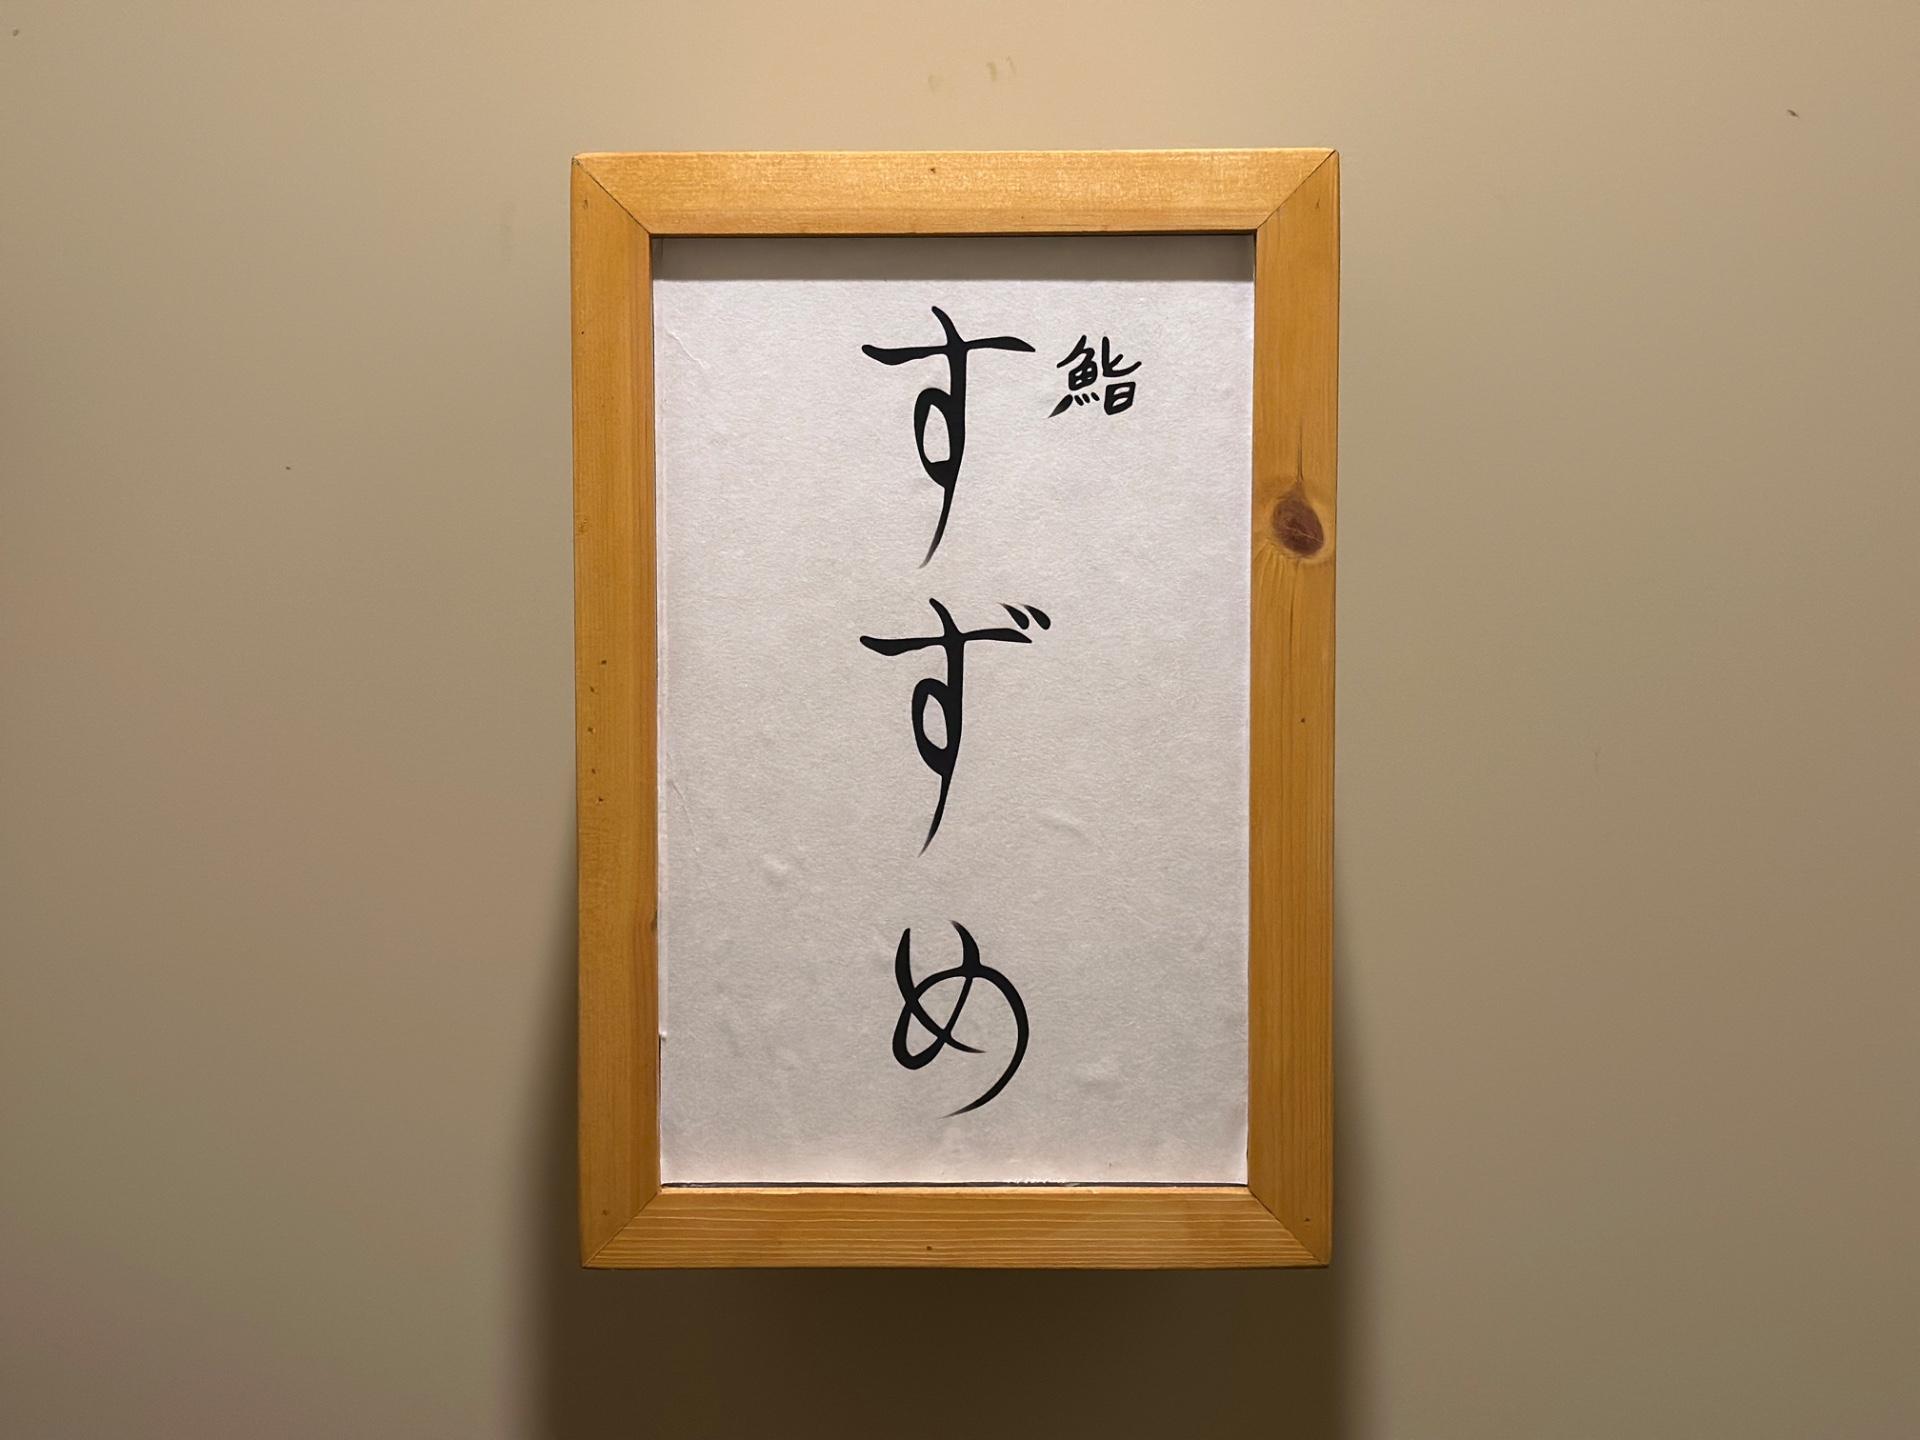 鮨
すずめ